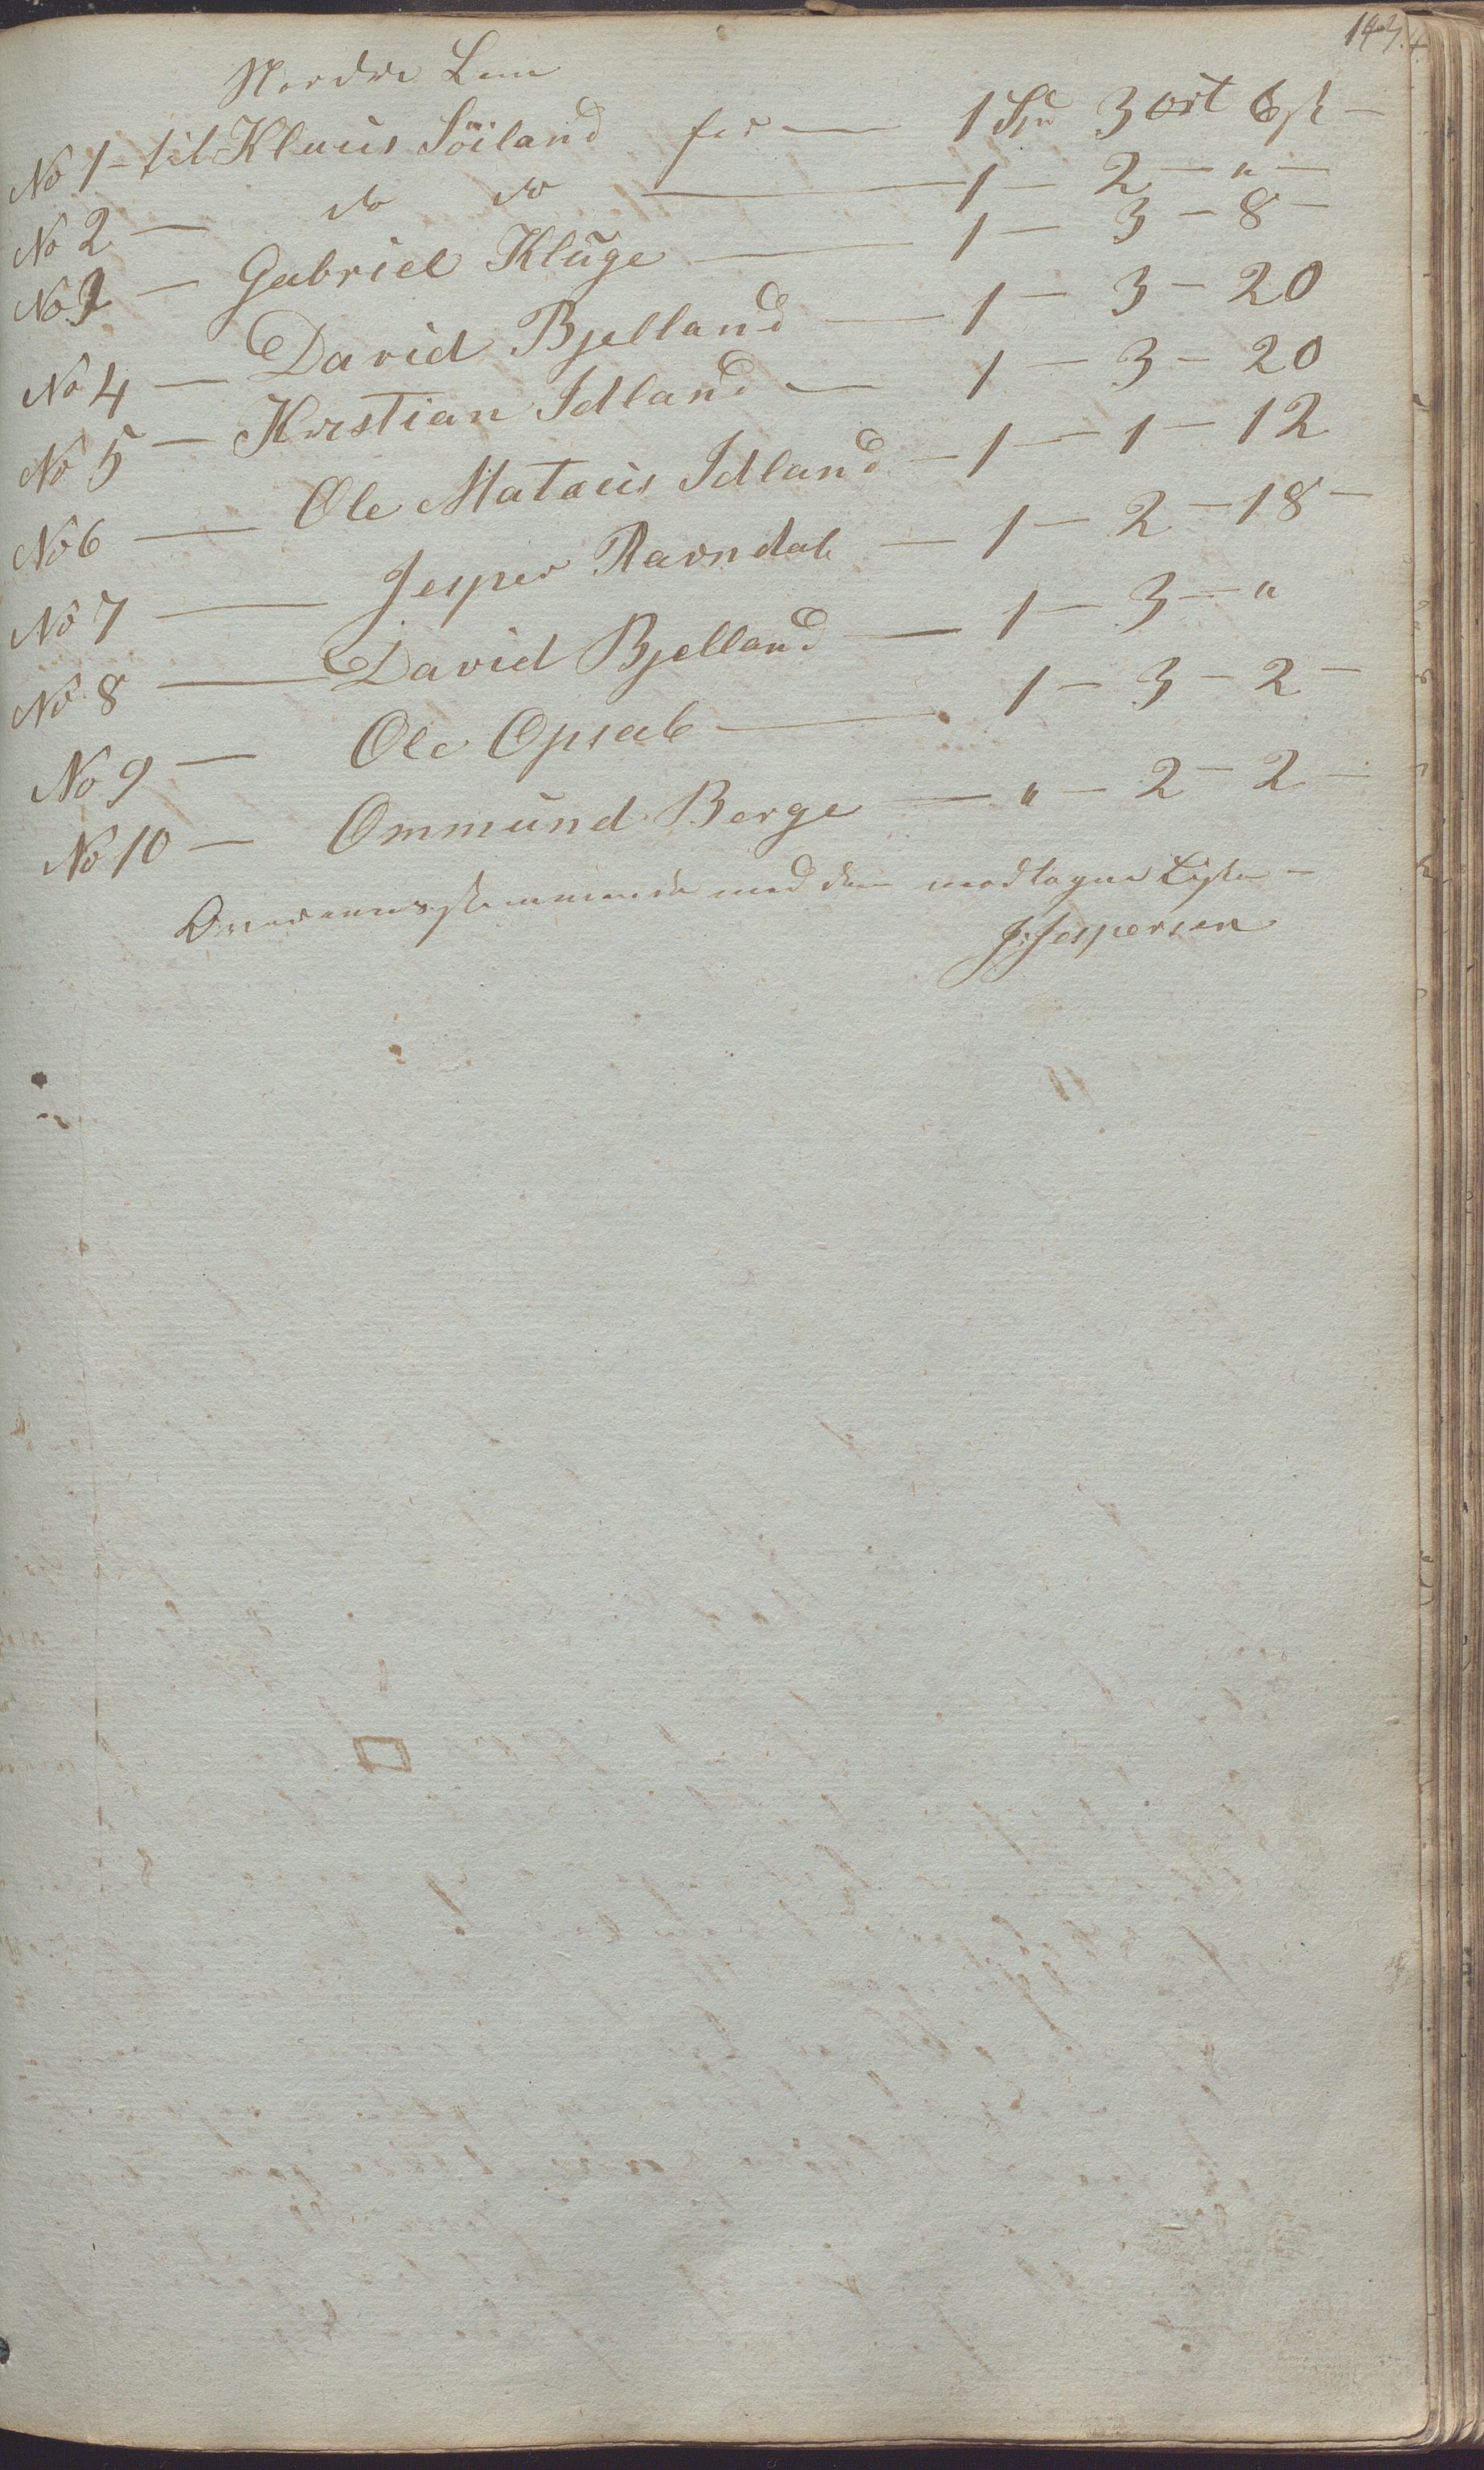 143.
Nordre Lim
No 1 – til Klaus Söiland for — 1 Spd 3 ort 6 sk –
No 2 — do do — 1 – 2 – " –
No 3 — Gabriel Kluge — 1 – 3 – 8 –
No 4 — David Bjelland — 1 – 3 – 20
No 5 — Krestian Idland — 1 – 3 – 20
No 6 — Ole Mataus Idland – 1 – 1 – 12
No 7 — Jesper Ravndal — 1 – 2 – 18 –
No 8 — David Bjelland — 1 – 3 – "
No 9 — Ole Opsal — 1 – 3 – 2 –
No 10 — Ommund Berge — " – 2 – 2 –
Overeensstemmende med den modtagne Liste –
J. Jespersen